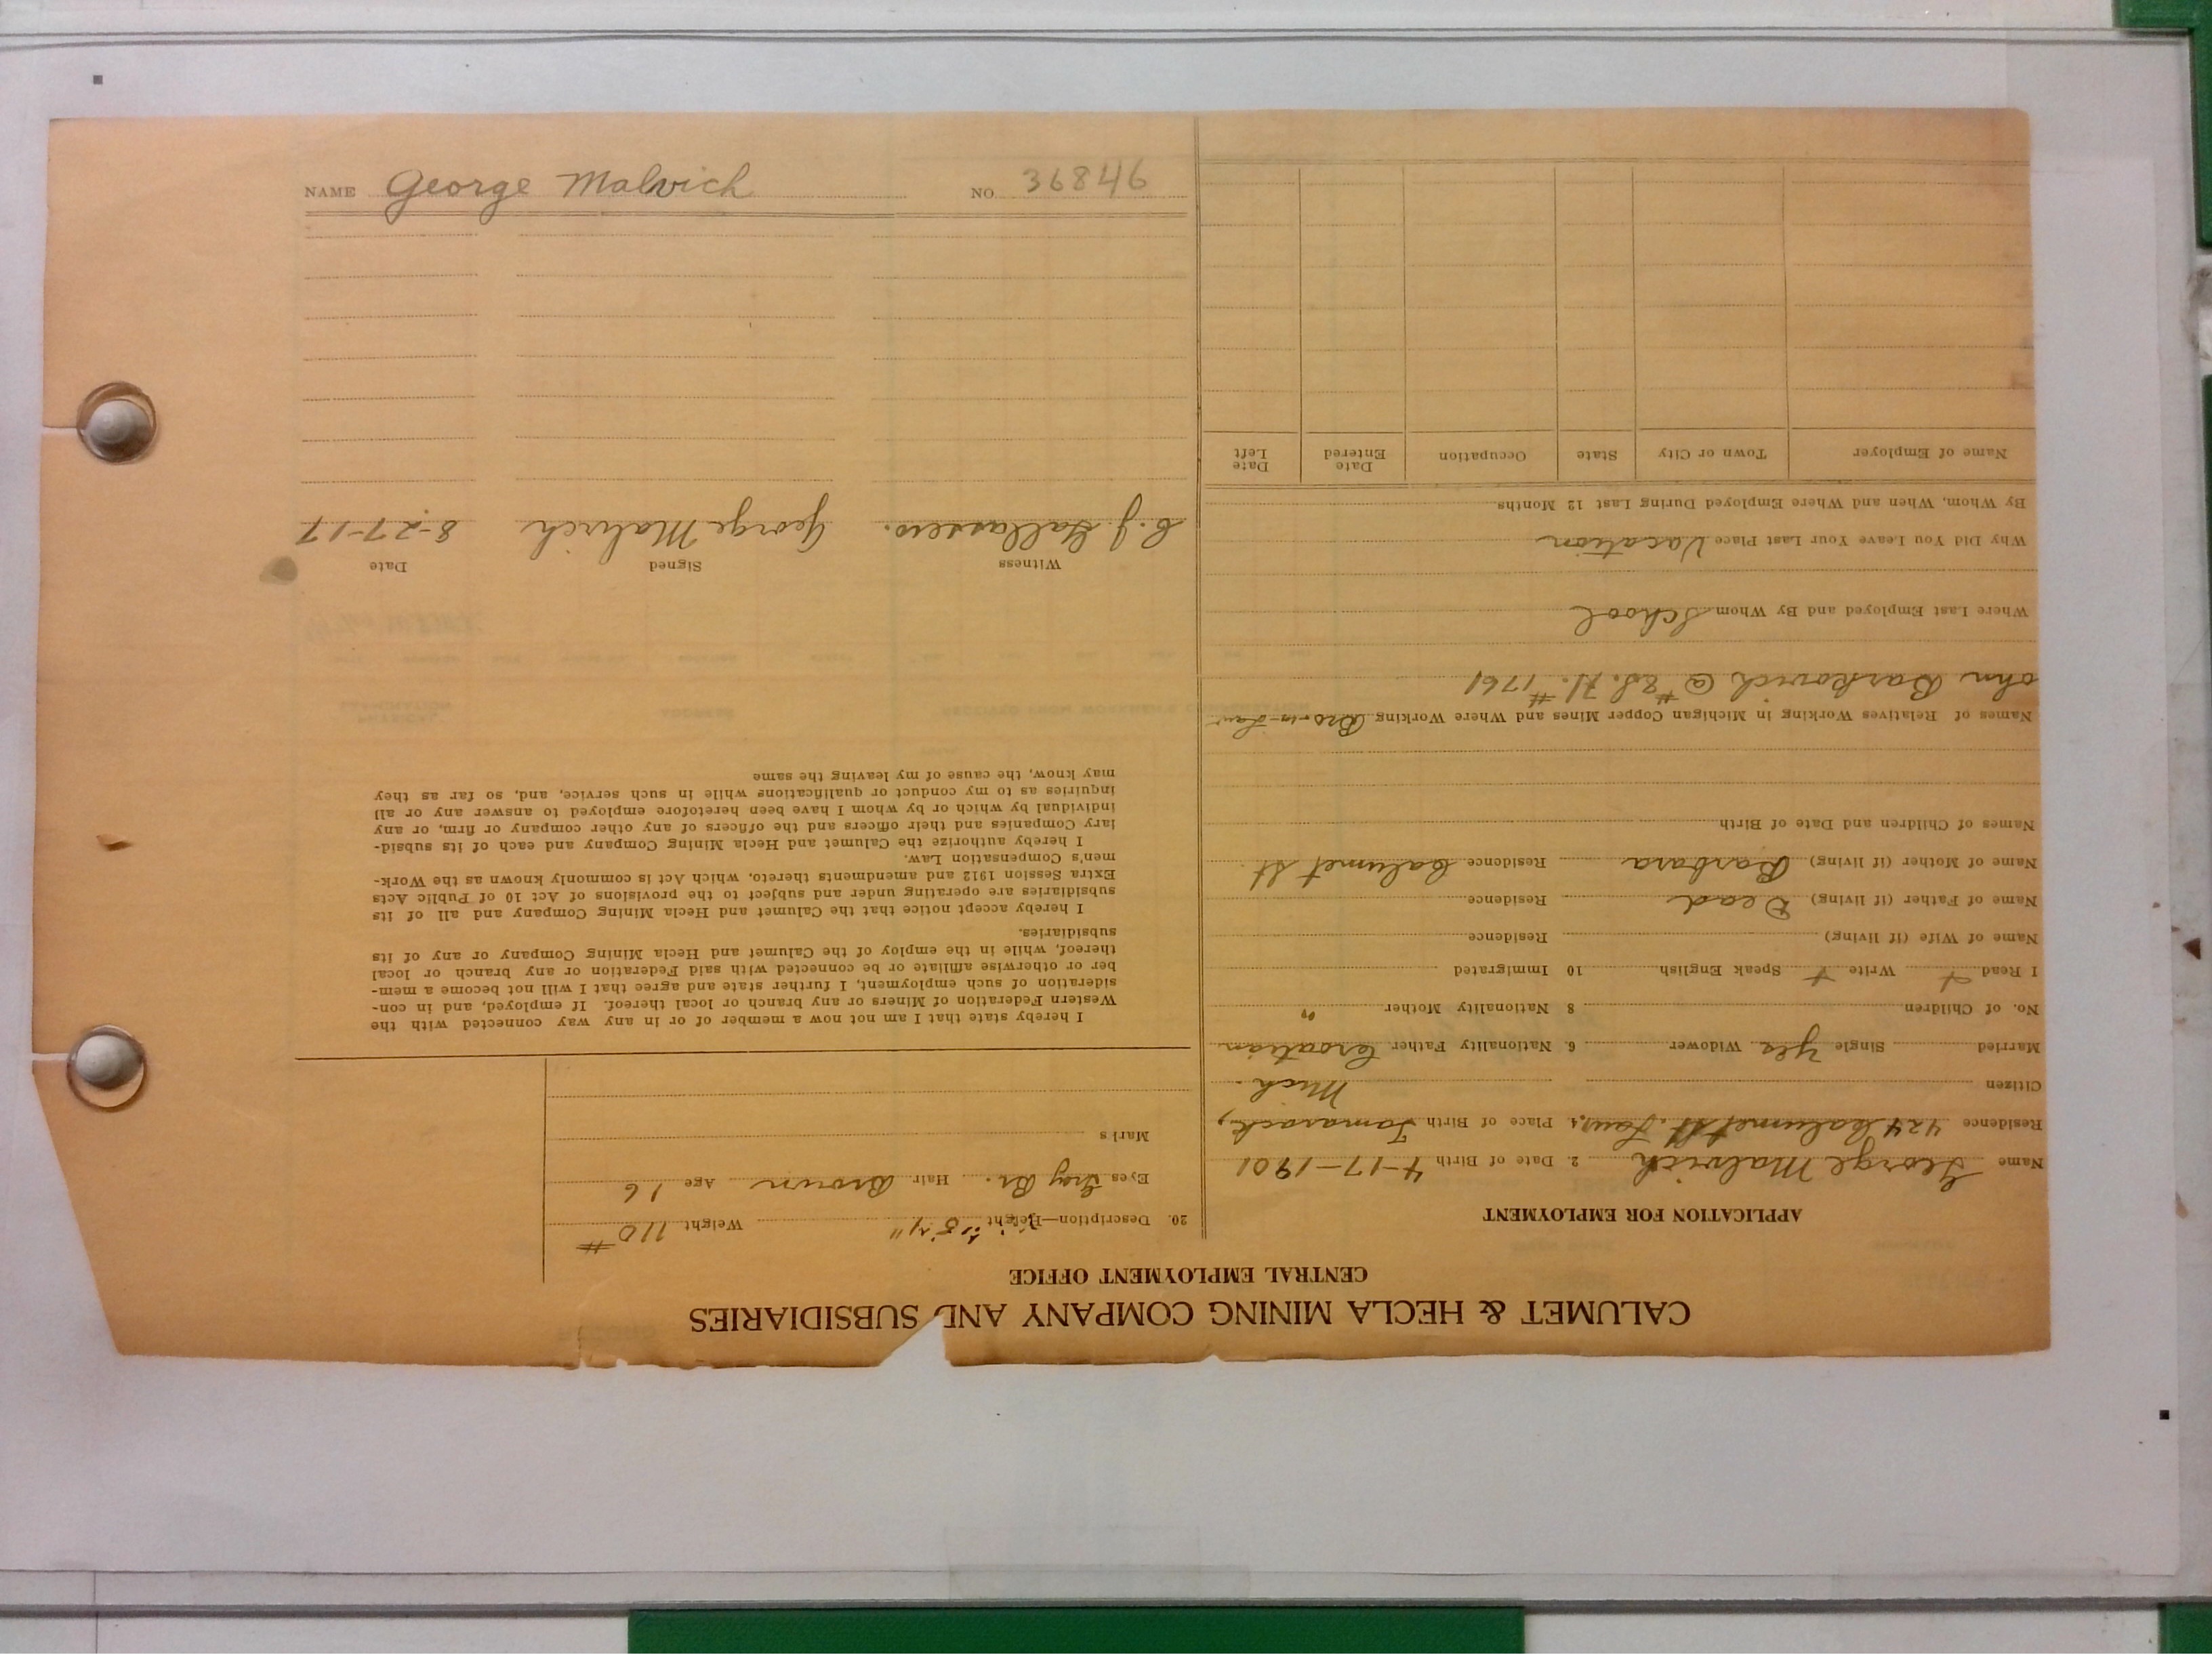 CALUMET & HECLA MINING COMPANY AND SUBSIDIARIES
CENTRAL EMPLOYMENT OFFICE
APPLICATION FOR EMPLOYMENT
Name George Malvich 2. Date of Birth 4-17-1901
Residence 424 Calumet St. Laur, 4. Place of Birth Tamarack,
Citizen Mich.
Married Single Yes Widower 6. Nationality Father Croatian
No. of Children 8 Nationality Mother "
I Read Write Speak English 10 Immigrated
Name of Wife (if living) Residence
Name of Father (if living) Dead Residence
Name of Mother (if living) Barbara Residence Calumet St.
Names of Children and Date of Birth
Names of Relatives Working in Michigan Copper Mines and Where Working Bro-in-Law
ohn Barkovich @ #8 # 1761
Where Last Employed and By Whom School
Why Did You Leave Your Last Place Vacation
By Whom, When and Where Employed During Last 12 Months
Name of Employer Town or City State Occupation Date Entered Date Left
20. Description—Height 5'4" Weight 110 #
Eyes Gray Br. Hair Brown Age 16
Marks
I hereby state that I am not now a member of or in any way connected with the
Western Federation of Miners or any branch or local thereof. If employed, and in con-
sideration of such employment, I further state and agree that I will not become a mem-
ber or otherwise affiliate or be connected with said Federation or any branch or local
thereof, while in the employ of the Calumet and Hecla Mining Company or any of its
subsidiaries.
I hereby accept notice that the Calumet and Hecla Mining Company and all of its
subsidiaries are operating under and subject to the provisions of Act 10 of Public Acts
Extra Session 1912 and amendments thereto, which Act is commonly known as the Work-
men's Compensation Law.
I hereby authorize the Calumet and Hecla Mining Company and each of its subsid-
iary Companies and their officers and the officers of any other company or firm, or any
individual by which or by whom I have been heretofore employed to answer any or all
inquiries as to my conduct or qualifications while in such service, and, so far as they
may know, the cause of my leaving the same
Witness Signed Date
George Malvich 8-27-17
NAME George Malvich NO. 36846